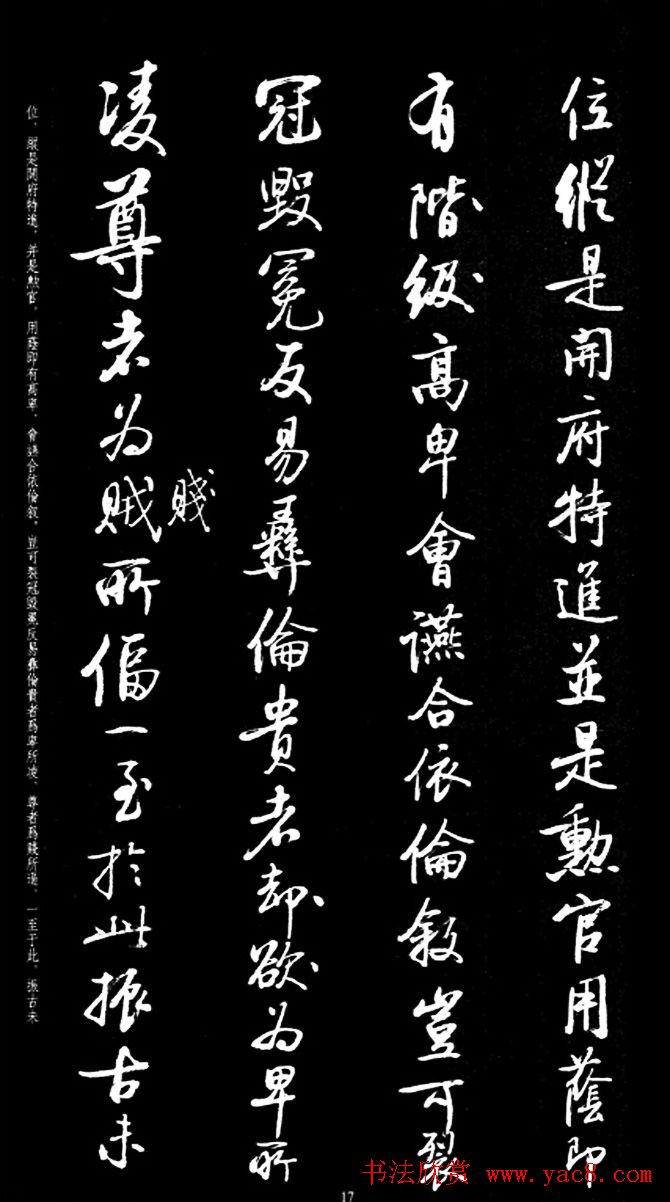 位縱是開府特進並是勲官用蔭即
有階級高卑會讌合依倫叙豈可裂
冠毀冕反易彝倫貴者却欲为卑所
凌尊者为贼所偪一至於此振古未
賤
位，縱是開府特進，并是勲官，用蔭即有高卑，會讌合依倫叙，豈可裂冠毀冕反易彝倫貴者爲卑所凌，尊者爲賤所逼，一至于此，振古未
17
书法欣赏 www.yac8.com